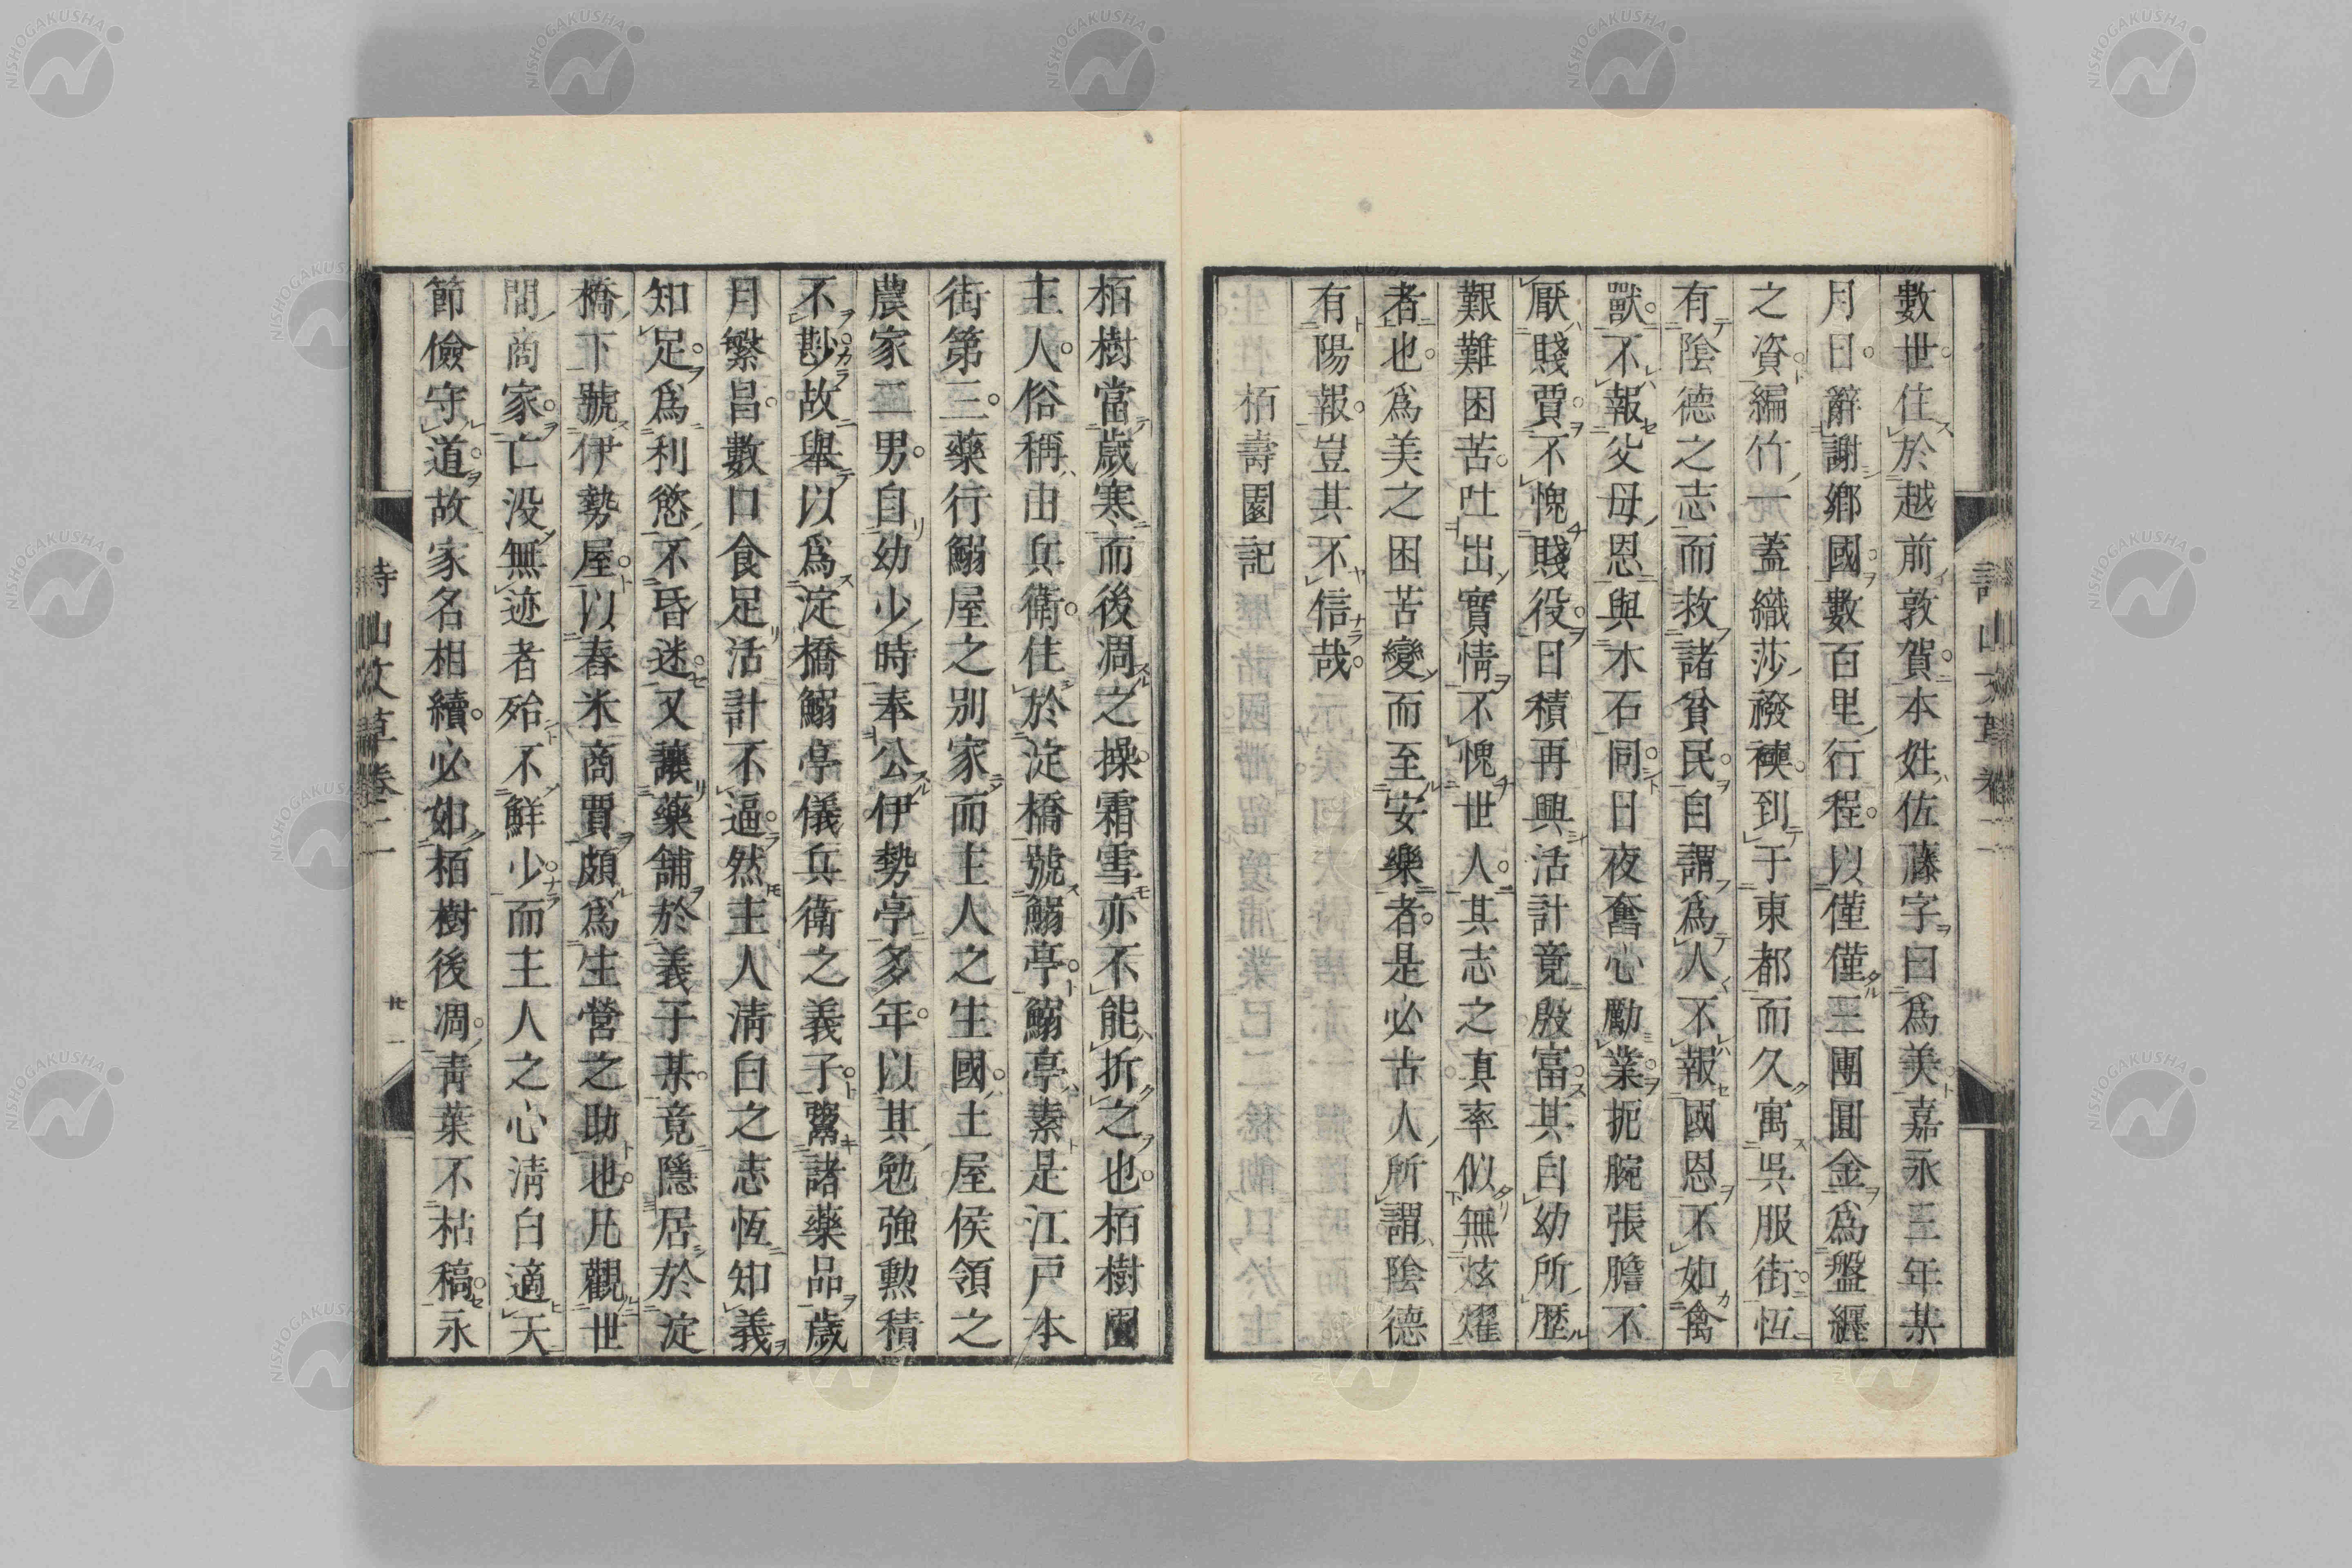 數世住於越前敦賀本姓佐藤字曰爲美嘉永三年某
月日辭謝鄉國數百里行程以僅僅三團圓金爲盤纒
之資編竹一蓋織莎襏襫到于東都而久寓吳服街恆
有陰德之志而救諸貧民自謂爲人不報國恩不如禽
獸不報父母恩與木石同日夜奮心勵業扼腕張膽不
厭賤賈不愧賤役日積再興活計竟殷富其自幼所歷
艱難困苦吐出實情不愧世人其志之真率似無炫燿
者也爲美之困苦變而至安樂者是必古人所謂陰德
有陽報豈其不信哉
栢壽園記
栢樹當歲寒而後凋之操霜雪亦不能折之也栢樹園
主人俗稱由兵衛住於淀橋號鰯亭鰯亭素是江戸本
街第三藥行鰯屋之別家而主人之生國土屋侯領之
農家二男自幼少時奉公伊勢亭多年以其勉強勲積
不尠故舉以爲淀橋鰯亭儀兵衛之義子鬻諸藥品歲
月繁昌數口食足活計不逼然主人淸白之志恆知義
知足爲利慾不昏迷又讓藥舖於義子某竟隱居於淀
橋下號伊勢屋以舂米商賈頗爲生營之助也凡觀世
間商家亡没無迹者殆不鮮少而主人之心淸白適天
節儉守道故家名相續必如栢樹後凋青葉不枯稿永
詩山文草卷二
廿一